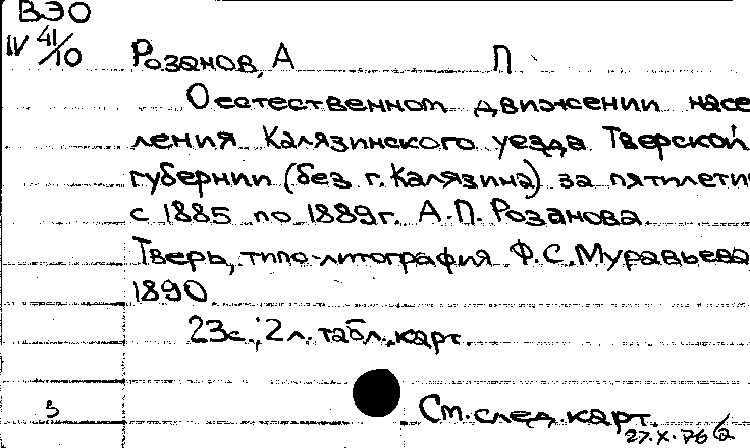 ВЭО
IV 41/10
Розанов, А П
О естественном движении насе
ления Калязинского уезда Тверской
губернии (без г. Калязина) за пятилетие
с 1885 по 1889г. А.П. Розанова.
Тверь, типо-литография Ф.С. Муравьева
1890.
23с.; 2 л. табл., карт.
3
См. след. карт.
27.X.76